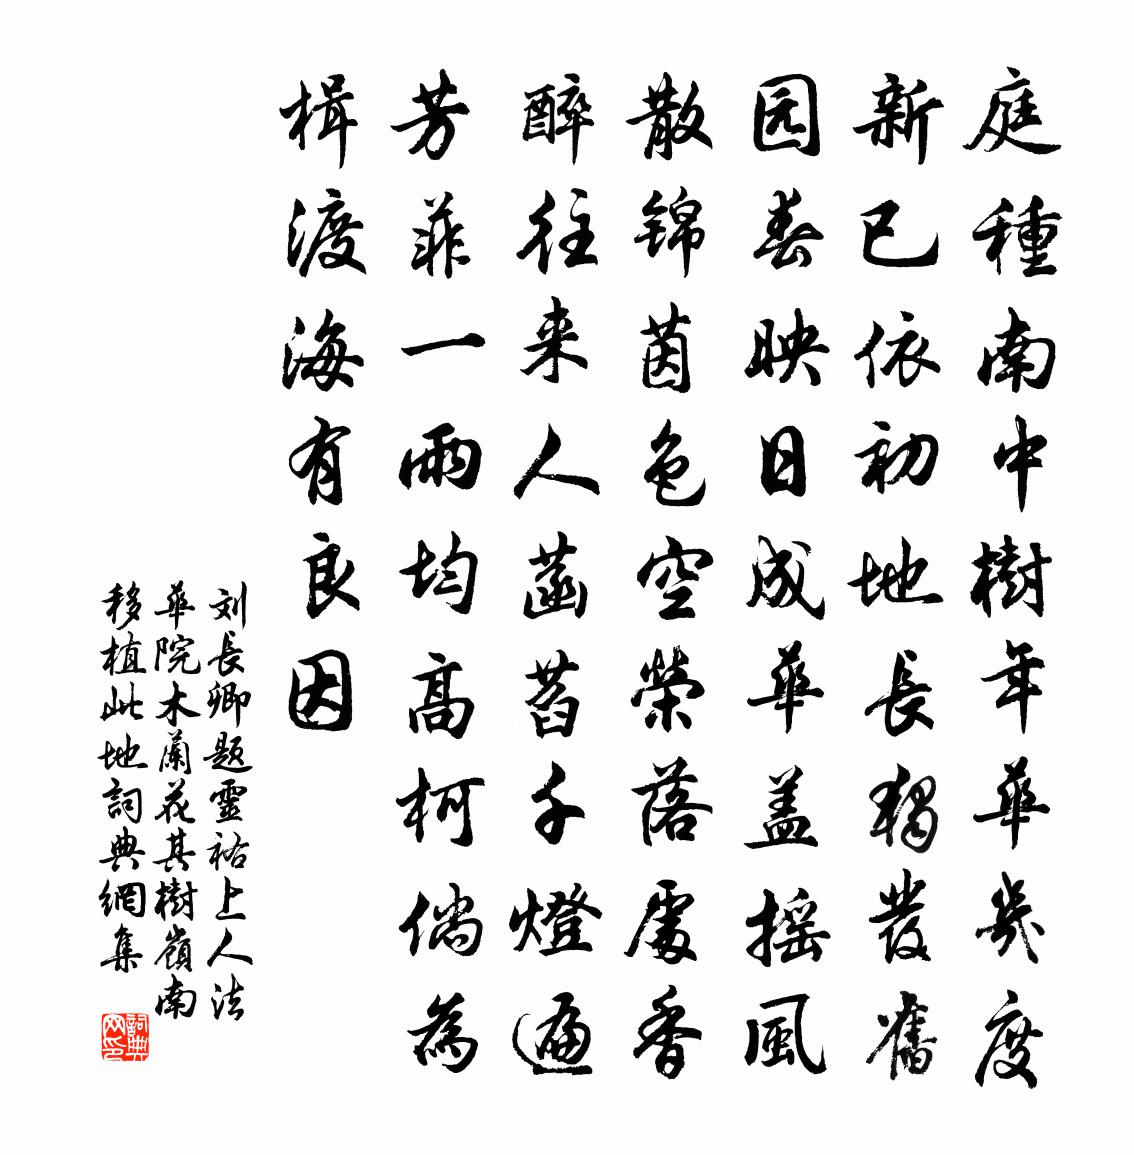 庭種南中樹年華幾度
新已依初地長獨發舊
园春映日成華盖摇風
散锦茵色空榮落處香
醉往来人菡萏千燈遍
芳菲一雨均高柯倘為
楫渡海有良因
刘長卿題靈祐上人法
華院木蘭花其樹嶺南
移植此地詞典網集
詞典网印